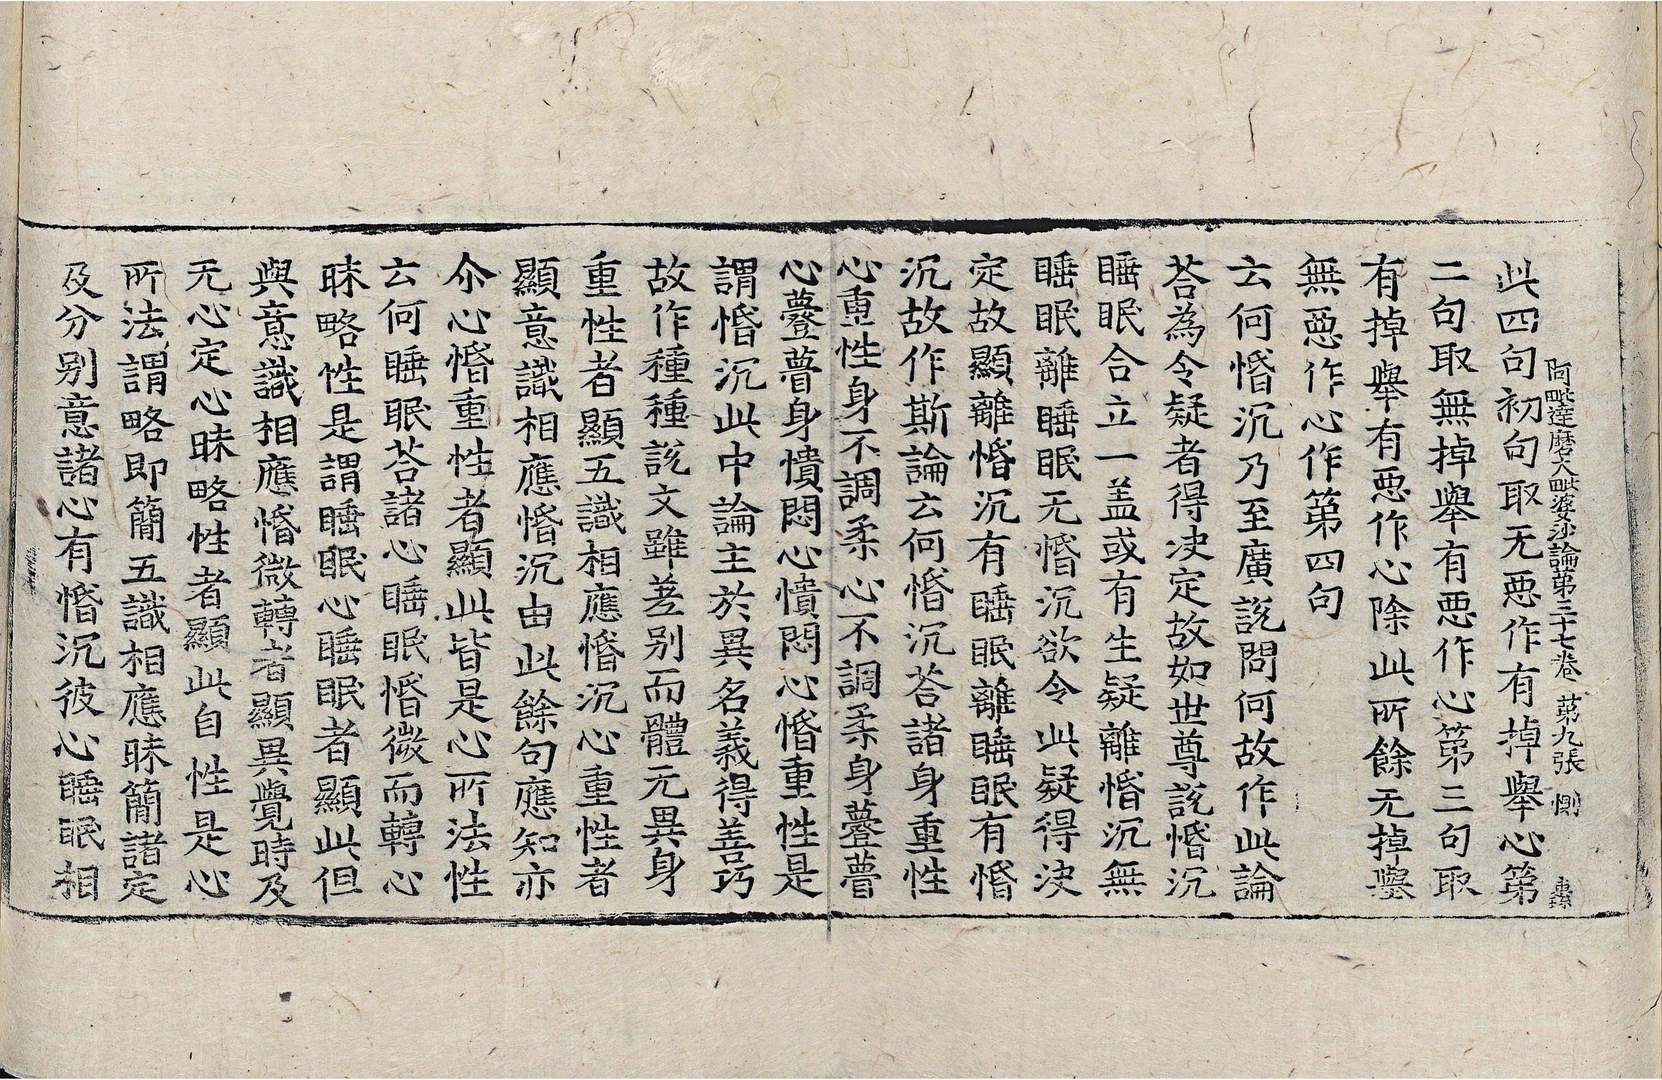 阿毗達磨大毗婆沙論第三十七卷 第九張 惻
此四句初句取无惡作有掉舉心第
二句取無掉舉有惡作心第三句取
有掉舉有惡作心除此所餘无掉舉
無惡作心作第四句
云何惛沉乃至廣說問何故作此論
荅為令疑者得决定故如世尊說惛沉
睡眠合立一盖或有生疑離惛沉無
睡眠離睡眠无惛沉欲令此疑得决
定故顯離惛沉有睡眠離睡眠有惛
沉故作斯論云何惛沉荅諸身重性
心重性身不調柔心不調柔身䑃瞢
心䑃瞢身憒悶心憒悶心惛重性是
謂惛沉此中論主於異名義得善巧
故作種種說文雖差别而體无異身
重性者顯五識相應惛沉心重性者
顯意識相應惛沉由此餘句應知亦
尒心惛重性者顯此皆是心所法性
云何睡眠荅諸心睡眠惛微而轉心
昧略性是謂睡眠心睡眠者顯此但
與意識相應惛微轉者顯異覺時及
无心定心昧略性者顯此自性是心
所法謂略即簡五識相應昧簡諸定
及分别意諸心有惛沉彼心睡眠相